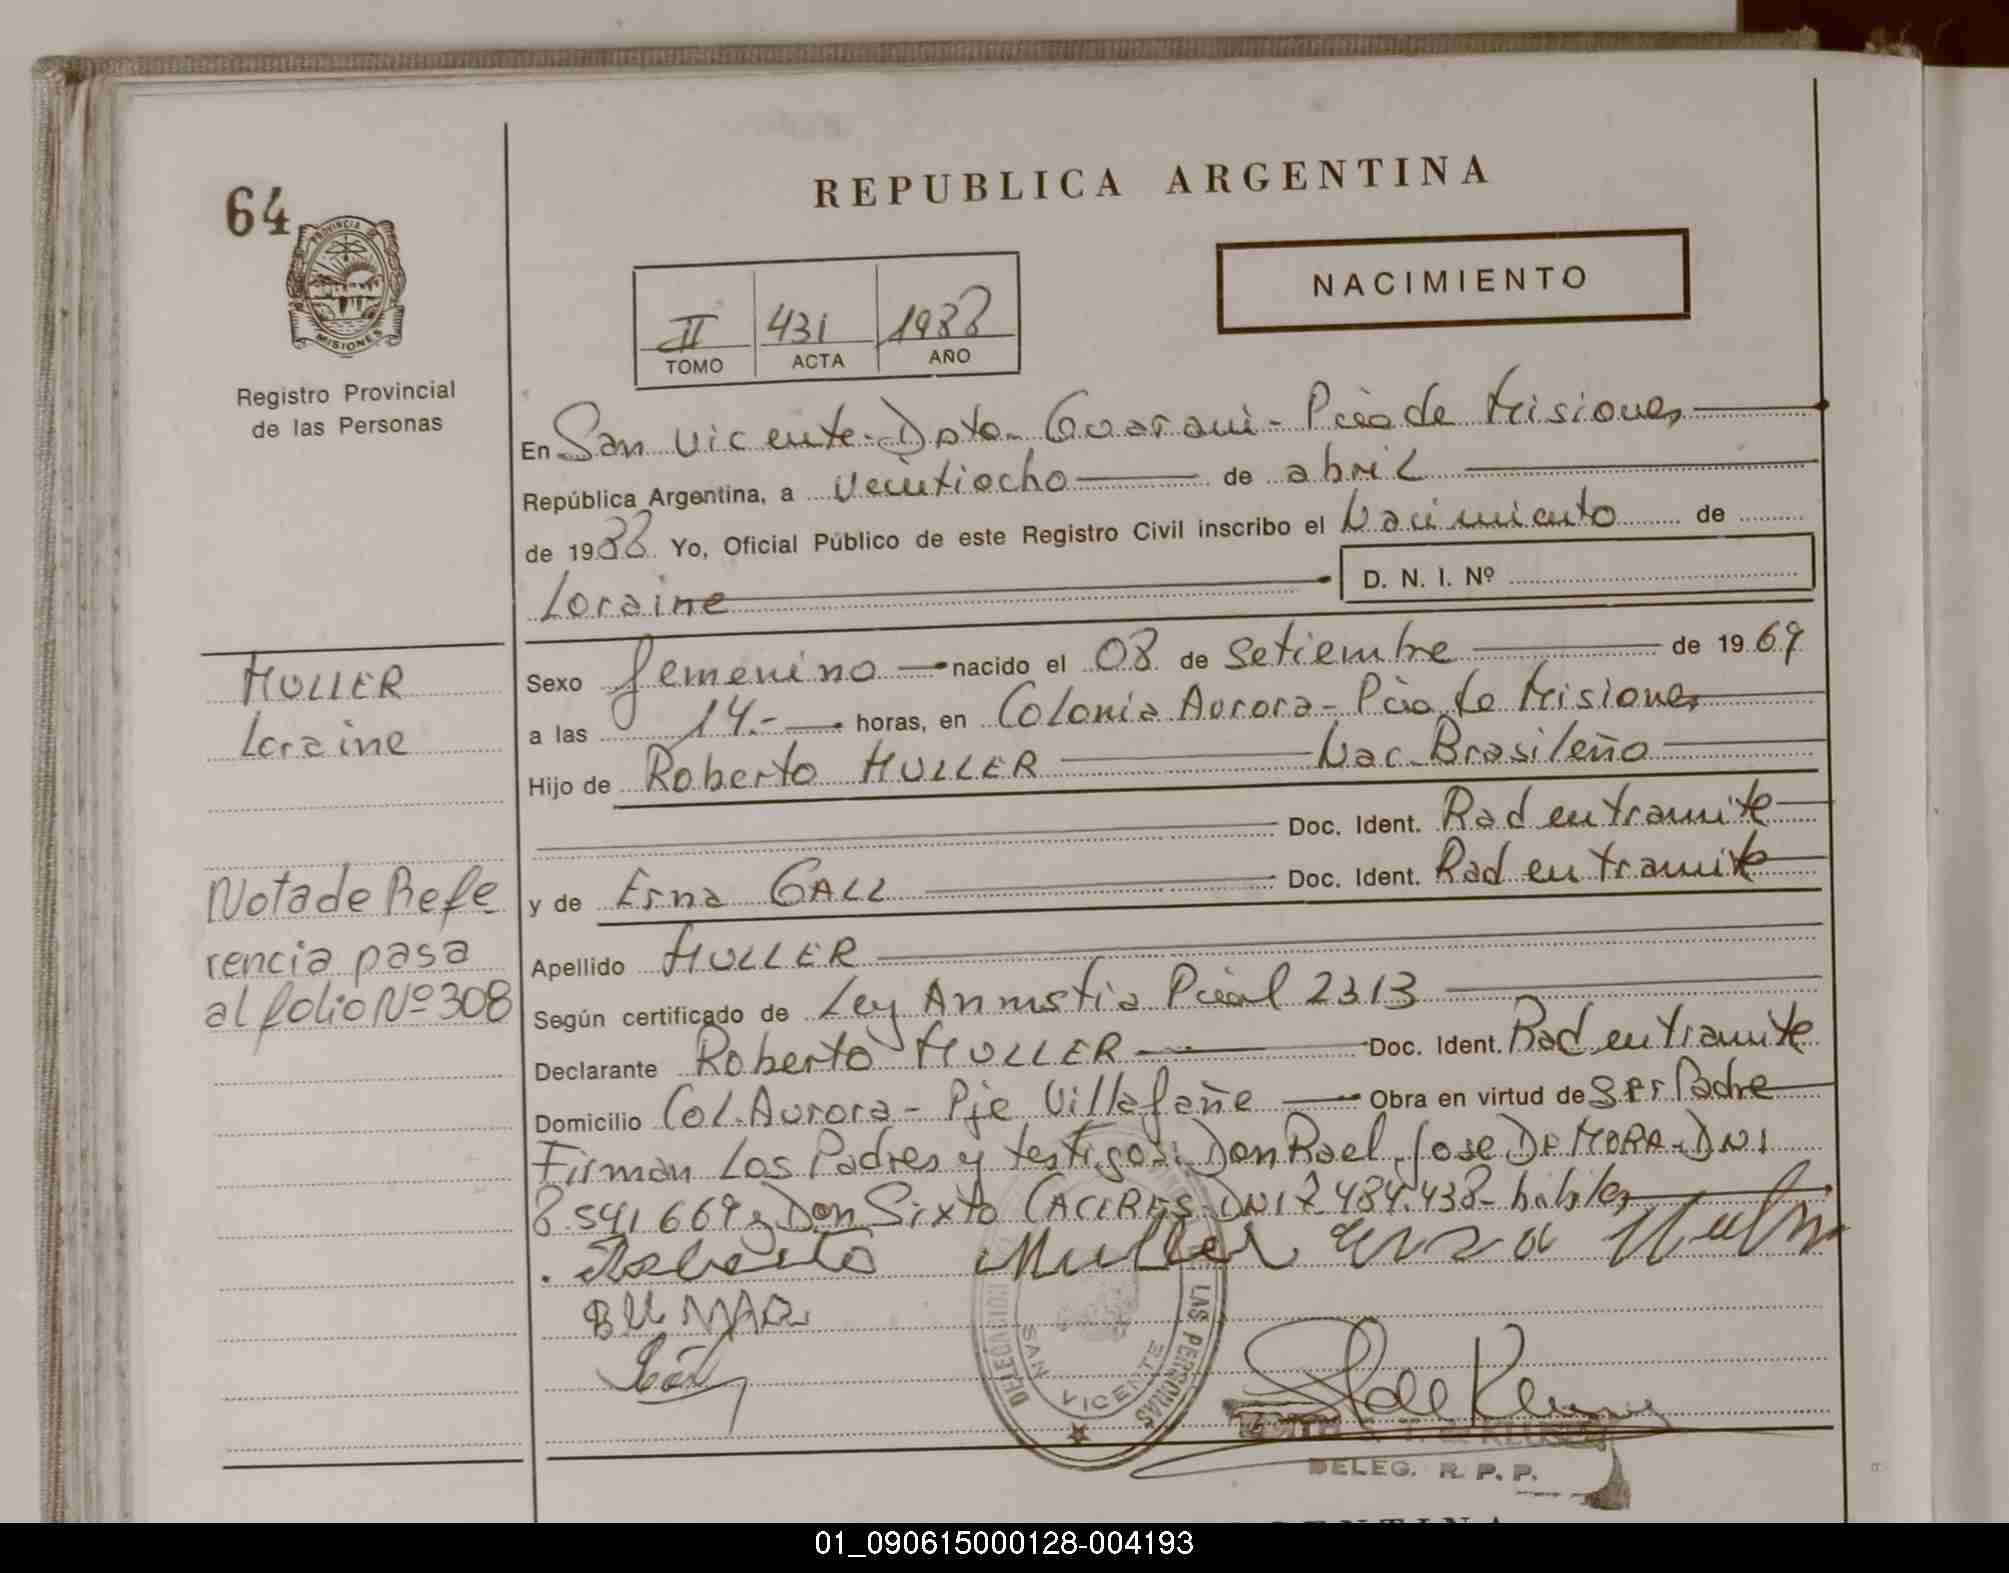 64
PROVINCIA DE
MISIONES
Registro Provincial
de las Personas
REPUBLICA ARGENTINA
NACIMIENTO
II 431 1988
TOMO ACTA AÑO
En San Vicente - Dpto - Guarani - Pcia de Misiones
República Argentina, a Veintiocho de abril
de 1988 Yo, Oficial Público de este Registro Civil inscribo el Nacimiento de
Loraine D. N. I. Nº
Sexo femenino nacido el 08 de Setiembre de 1969
a las 14.- horas, en Colonia Aurora - Pcia de Misiones
Hijo de Roberto MULLER Nac. Brasileño
Doc. Ident. Rad en tramite
y de Erna GALL Doc. Ident. Rad en tramite
Apellido MULLER
Según certificado de Ley Anmstia Pcial 2313
Declarante Roberto MULLER Doc. Ident. Rad en tramite
Domicilio Col. Aurora - Pje Villafañe Obra en virtud de ser Padre
Firman Los Padres y testigos: Don Rael Jose DE MORA - DNI
8.541.669 y Don Sixto CACERES - DNI 7.484.438 - habiles
Roberto Muller Erna
MULLER
Loraine
Nota de Refe
rencia pasa
al folio Nº 308
DELEGACION LAS PERSONAS
SAN VICENTE
DELEG. R. P. P.
01_090615000128-004193